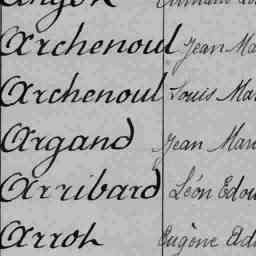 Archenoul Jean Ma
Archenoul Louis Mar
Argand Jean Mar
Arribard Léon Edou
Arroh Eugène